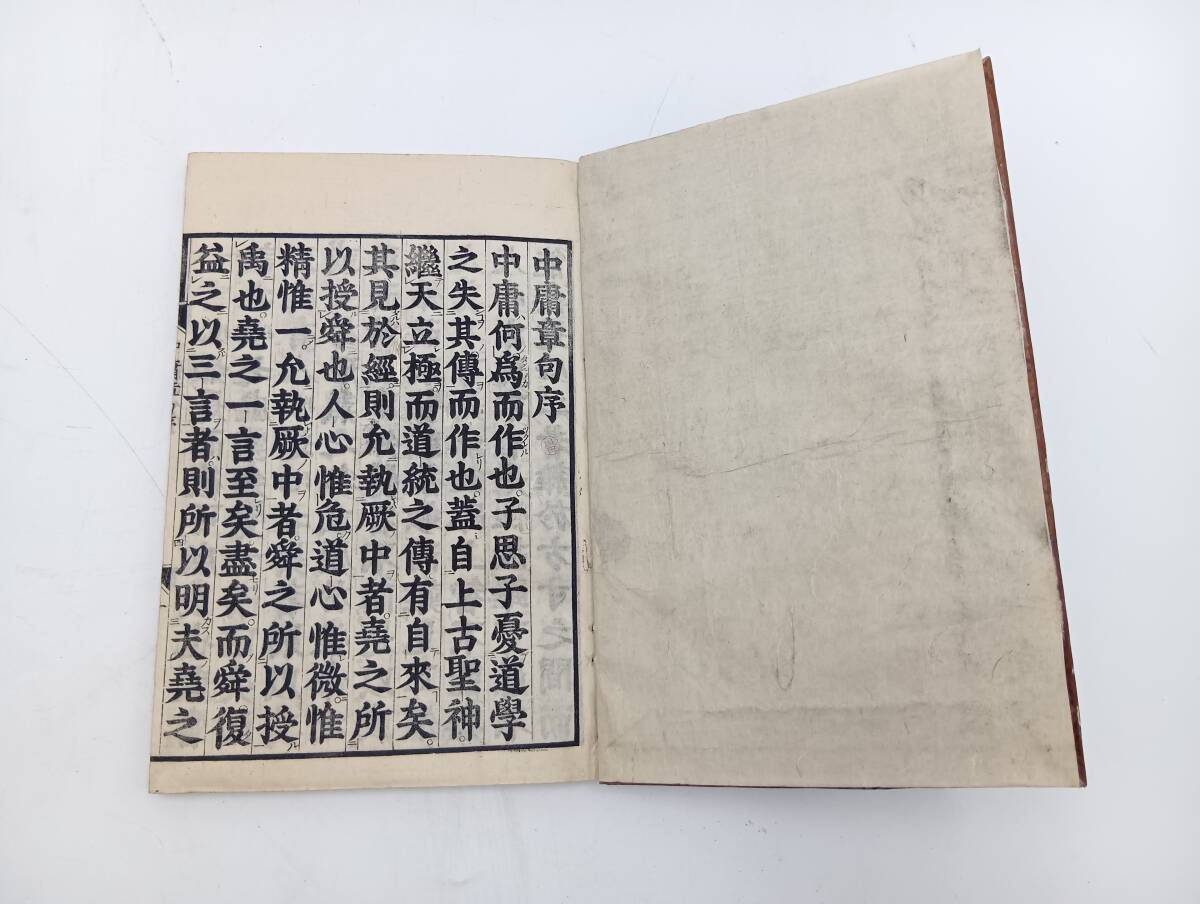 中庸章句序
中庸何爲而作也子思子憂道學
之失其傳而作也蓋自上古聖神
繼天立極而道統之傳有自來矣
其見於經則允執厥中者堯之所
以授舜也人心惟危道心惟微惟
精惟一允執厥中者舜之所以授
禹也堯之一言至矣盡矣而舜復
益之以三言者則所以明夫堯之